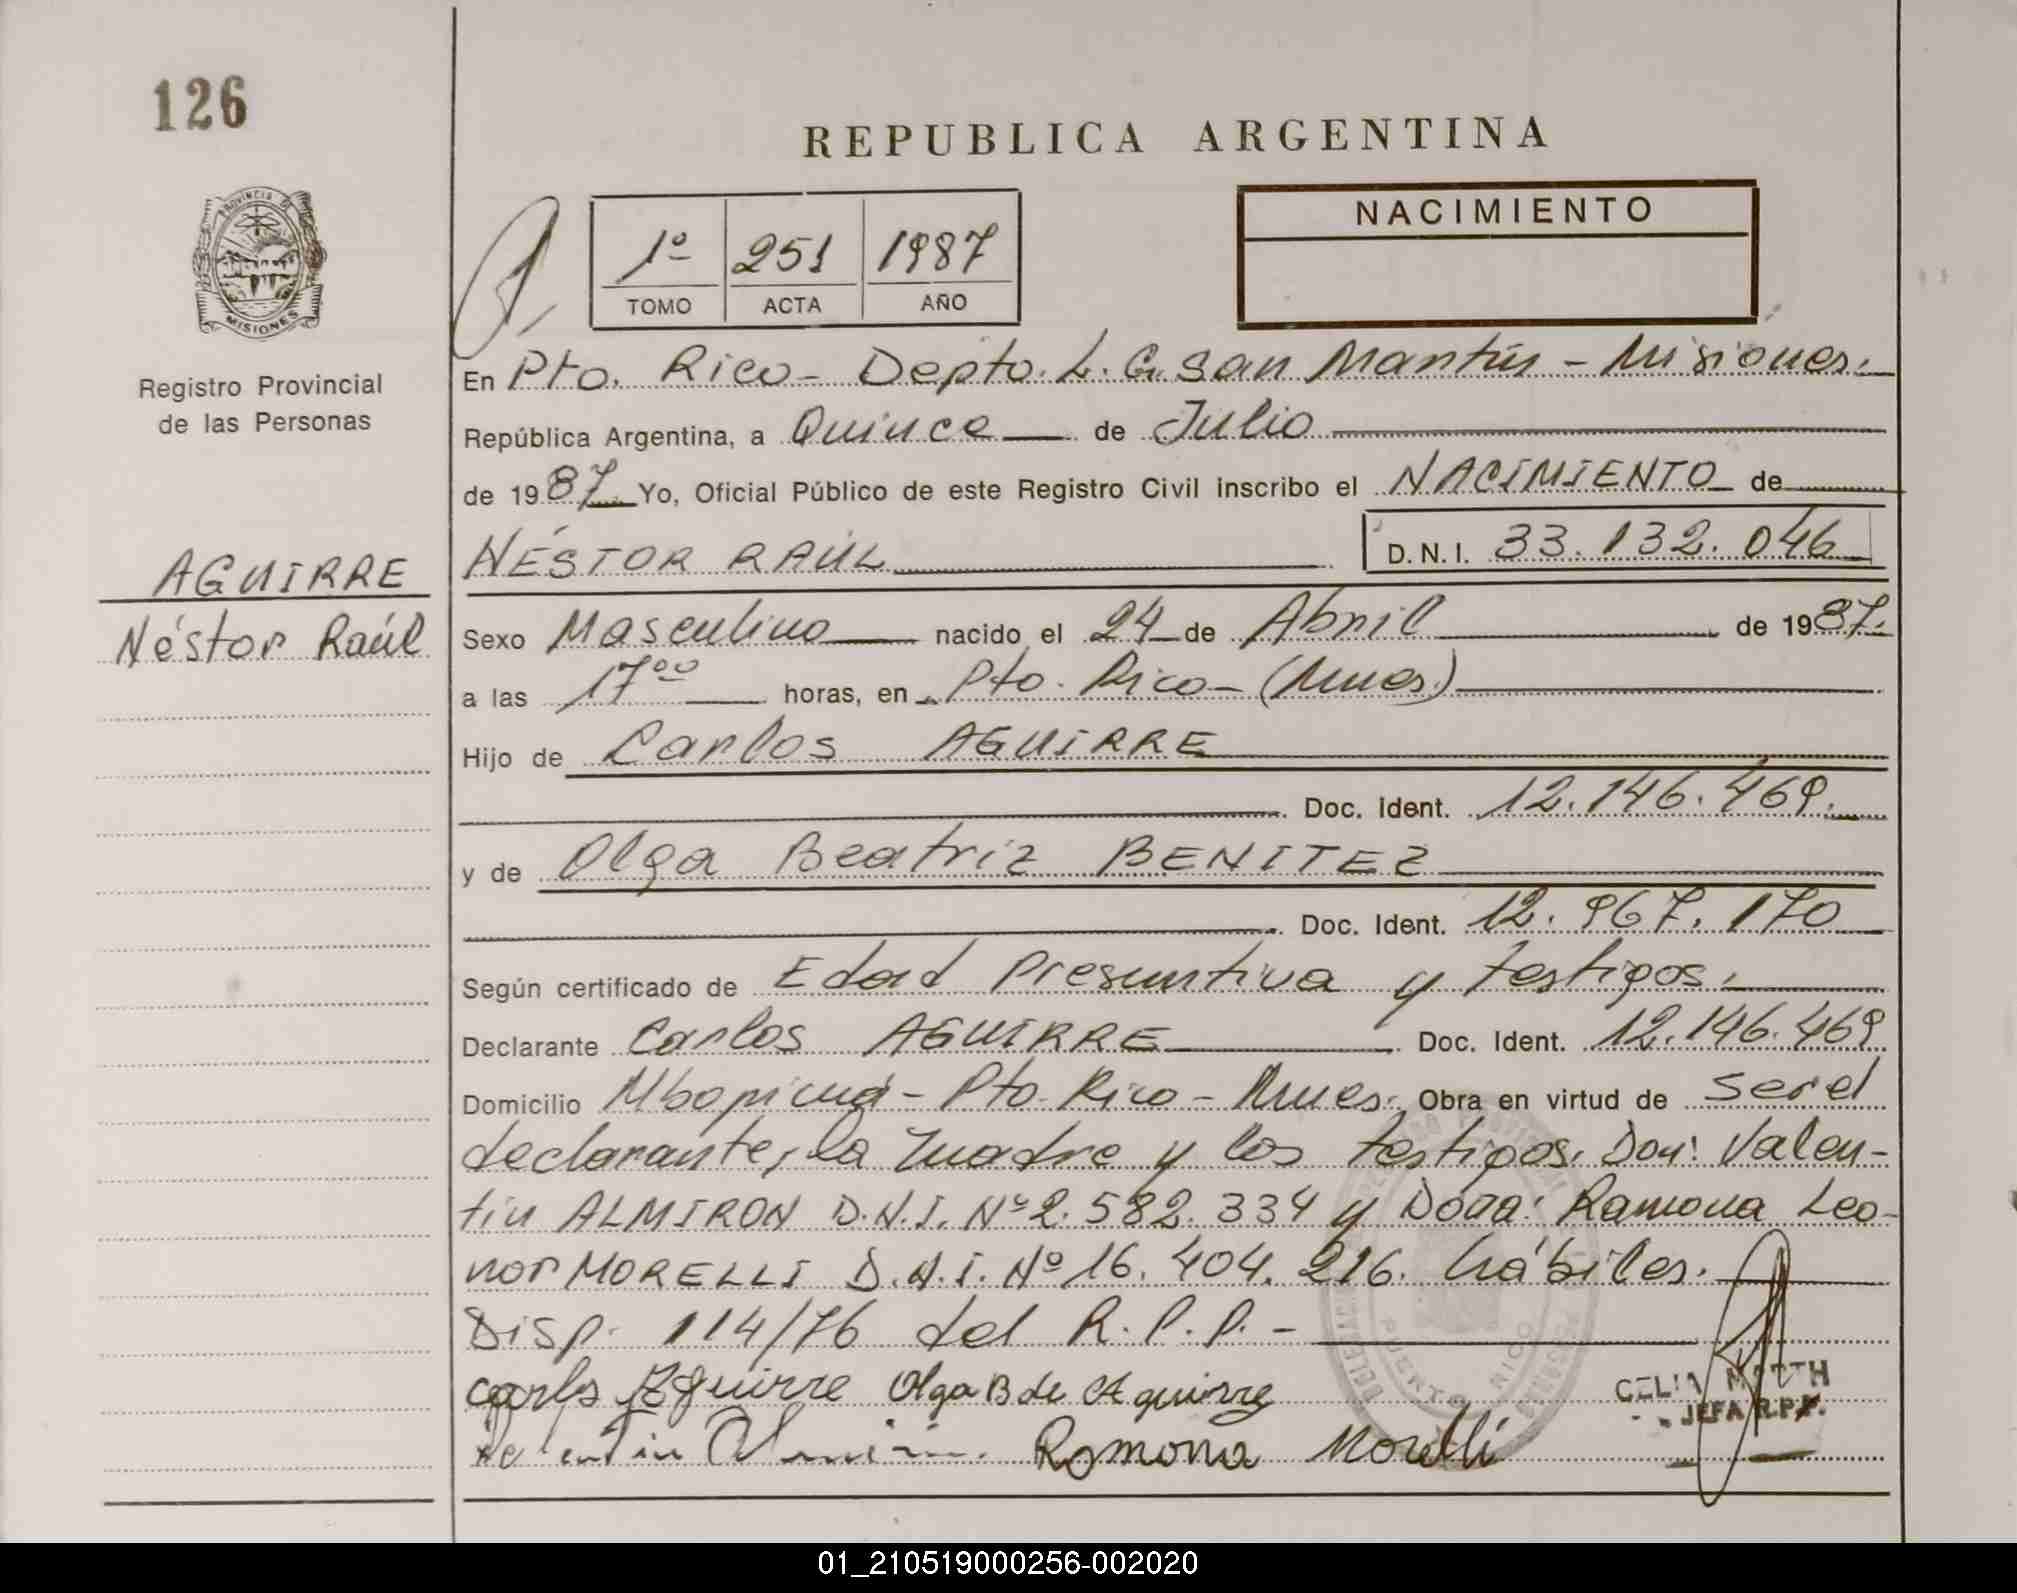 126
REPUBLICA ARGENTINA
PROVINCIA D
MISIONES
Registro Provincial
de las Personas
1º 251 1987
TOMO ACTA AÑO
NACIMIENTO
En Pto. Rico - Depto. L. G. San Martín - Misiones.
República Argentina, a Quince de Julio
de 1987 Yo, Oficial Público de este Registro Civil inscribo el NACIMIENTO de
AGUIRRE
Néstor Raúl
NÉSTOR RAÚL D.N.I. 33.132.046
Sexo Masculino nacido el 24 de Abril de 1987.
a las 17⁰⁰ horas, en Pto. Rico - (Mnes.)
Hijo de Carlos AGUIRRE
Doc. Ident. 12.146.469.
y de Olga Beatriz BENITEZ
Doc. Ident. 12.967.170
Según certificado de Edad Presuntiva y testigos.
Declarante Carlos AGUIRRE Doc. Ident. 12.146.469
Domicilio Mbopicuá - Pto. Rico - Mnes. Obra en virtud de ser el
declarante, la madre y los testigos. Don: Valen-
tín ALMIRON D.N.I. Nº 2.582.334 y Doña: Ramona Leo-
nor MORELLI D.N.I. Nº 16.404.216. hábiles.
Disp. 114/76 del R.P.P. -
Carlos Aguirre Olga B de Aguirre
Ramona Morelli
CELIA
JEFA R.P.P.
PUERTO RICO
01_210519000256-002020